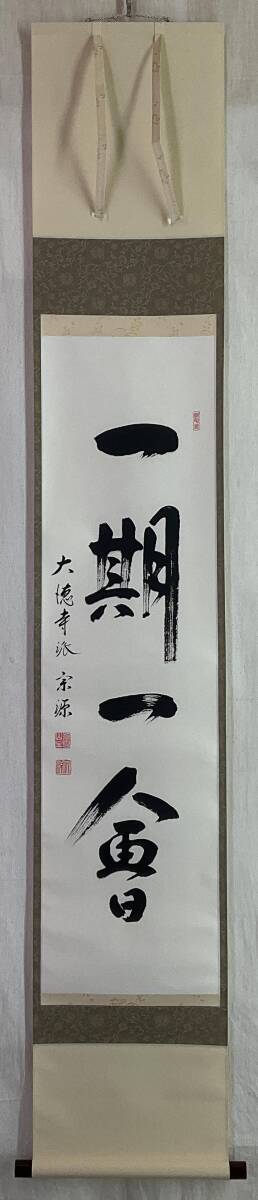 一期一會
大徳寺派 宗源